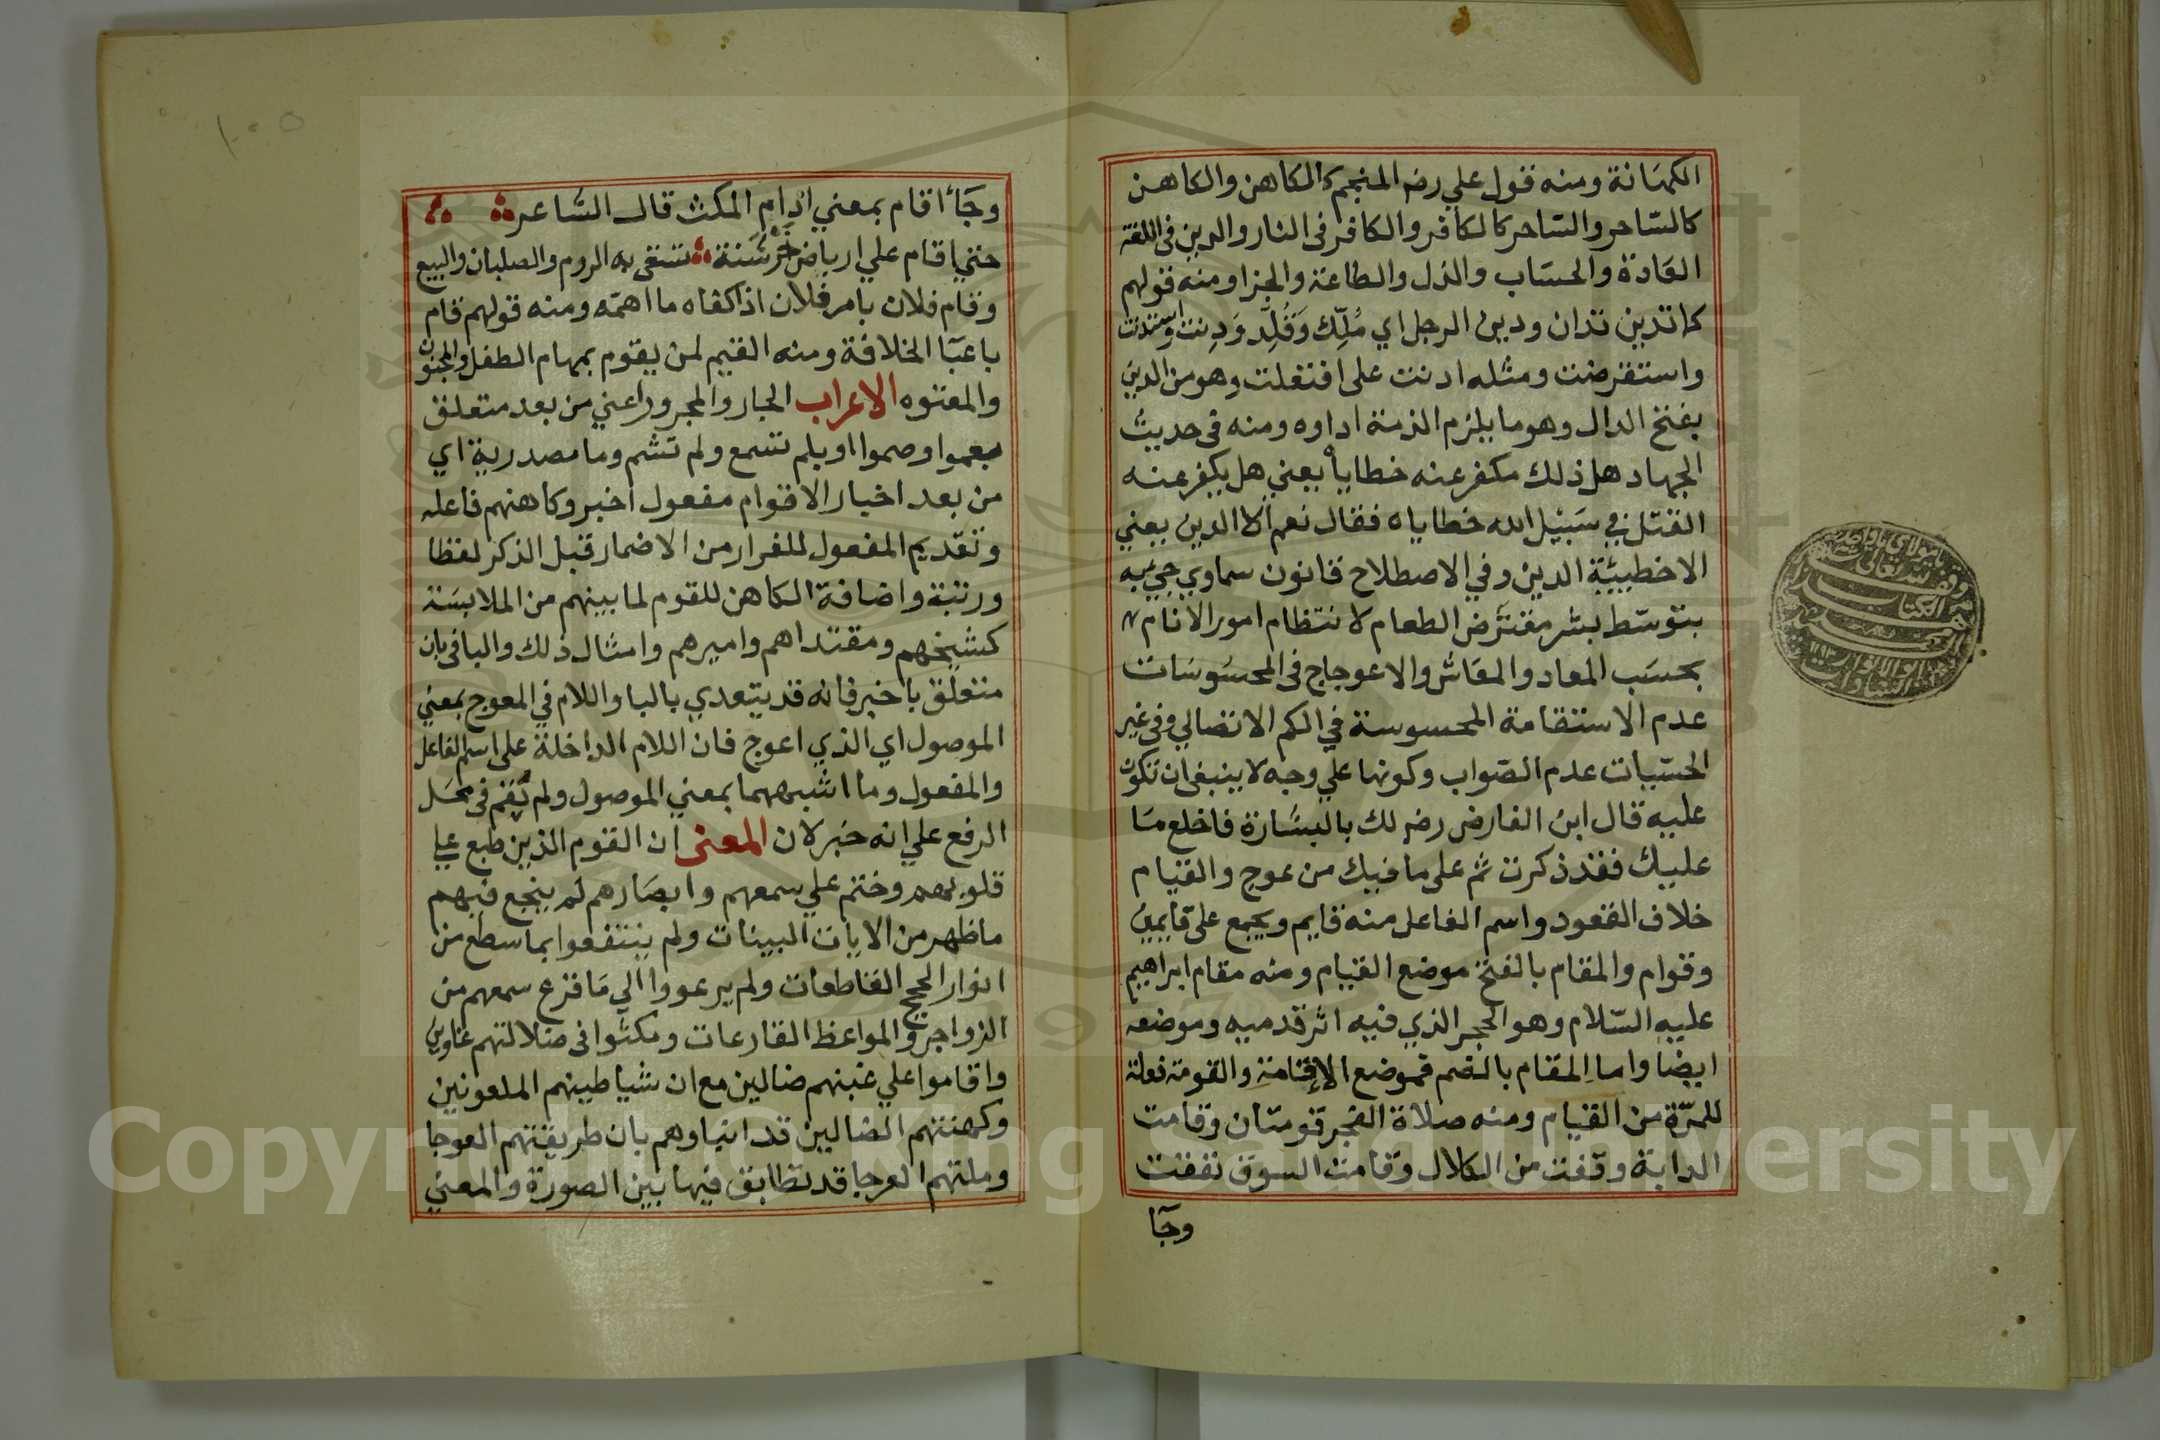 الكهانة ومنه قول علي رضه المنجم كالكاهن والكاهن
كالساحر والساحر كالكافر والكافر في النار والدين في اللغة
العادة والحساب والذل والطاعة والجزا ومنه قولهم
كما تدين تدان ودين الرجل اي مُلِّك وَقُلِّد وَدِنت واستدنت
واستقرضت ومثله ادنت على افتعلت وهو من الدين
بفتح الدال وهو ما يلزم الذمة اداوه ومنه في حديث
الجهاد هل ذلك مكفر عنه خطاياه يعني هل يكفر عنه
القتل في سبيل الله خطاياه فقال نعم الا الدين يعني
الا خطيئة الدين وفي الاصطلاح قانون سماوي جيء به
بتوسط بشر مفترض الطعام لانتظام امور الانام
بحسب المعاد والمعاش والاعوجاج في المحسوسات
عدم الاستقامة المحسوسة في الكم الاتصالي وفي غير
الحسيات عدم الصواب وكونها علي وجه لا ينبغي ان تكون
عليه قال ابن الفارض رضه لك بالبشارة فاخلع ما
عليك فقد ذكرت ثم على ما فيك من عوج والقيام
خلاف القعود واسم الفاعل منه قايم ويجمع على قايمين
وقوام والمقام بالفتح موضع القيام ومنه مقام ابراهيم
عليه السلام وهو الحجر الذي فيه اثر قدميه وموضعه
ايضا واما المقام بالضم فموضع الإقامة والقومة فعلة
للمرّة من القيام ومنه صلاة الفجر قومتان وقامت
الدابة وقفت من الكلال وقامت السوق نفقت
وجا
١٠٥
وجأ اقام بمعني ادام المكث قال الشاعر
حتي اقام علي ارباض خَرْشَنة تشقى به الروم والصلبان والبيع
وقام فلان بامر فلان اذا كفاه ما اهمه ومنه قولهم قام
باعبا الخلافة ومنه القيم لمن يقوم بمهام الطفل والمجنون
والمعتوه الاعراب الجار والمجرور اعني من بعد متعلق
بعموا وصموا او بلم تسمع ولم تشم وما مصدرية اي
من بعد اخبار الاقوام مفعول اخبر وكاهنهم فاعله
وتقديم المفعول للفرار من الاضمار قبل الذكر لفظا
ورتبة واضافة الكاهن للقوم لما بينهم من الملابسة
كشيخهم ومقتداهم واميرهم وامثال ذلك والبا في بان
متعلق باخبر فانه قد يتعدي بالبا واللام في المعوج بمعني
الموصول اي الذي اعوج فان اللام الداخلة على اسم الفاعل
والمفعول وما اشبههما بمعني الموصول ولم يقم في محل
الرفع علي انه خبر لان المعنى ان القوم الذين طبع علي
قلوبهم وختم علي سمعهم وابصارهم لم ينجع فيهم
ما ظهر من الايات البينات ولم ينتفعوا بما سطع من
انوار الحجج القاطعات ولم يرعووا الي ما قرع سمعهم من
الزواجر والمواعظ القارعات ومكثوا في ضلالتهم غاوين
واقاموا علي غيهم ضالين مع ان شياطينهم الملعونين
وكهنتهم الضالين قد انباوهم بان طريقتهم العوجا
وملتهم العرجا قد تطابق فيها بين الصورة والمعني
Copyright © King Saud University